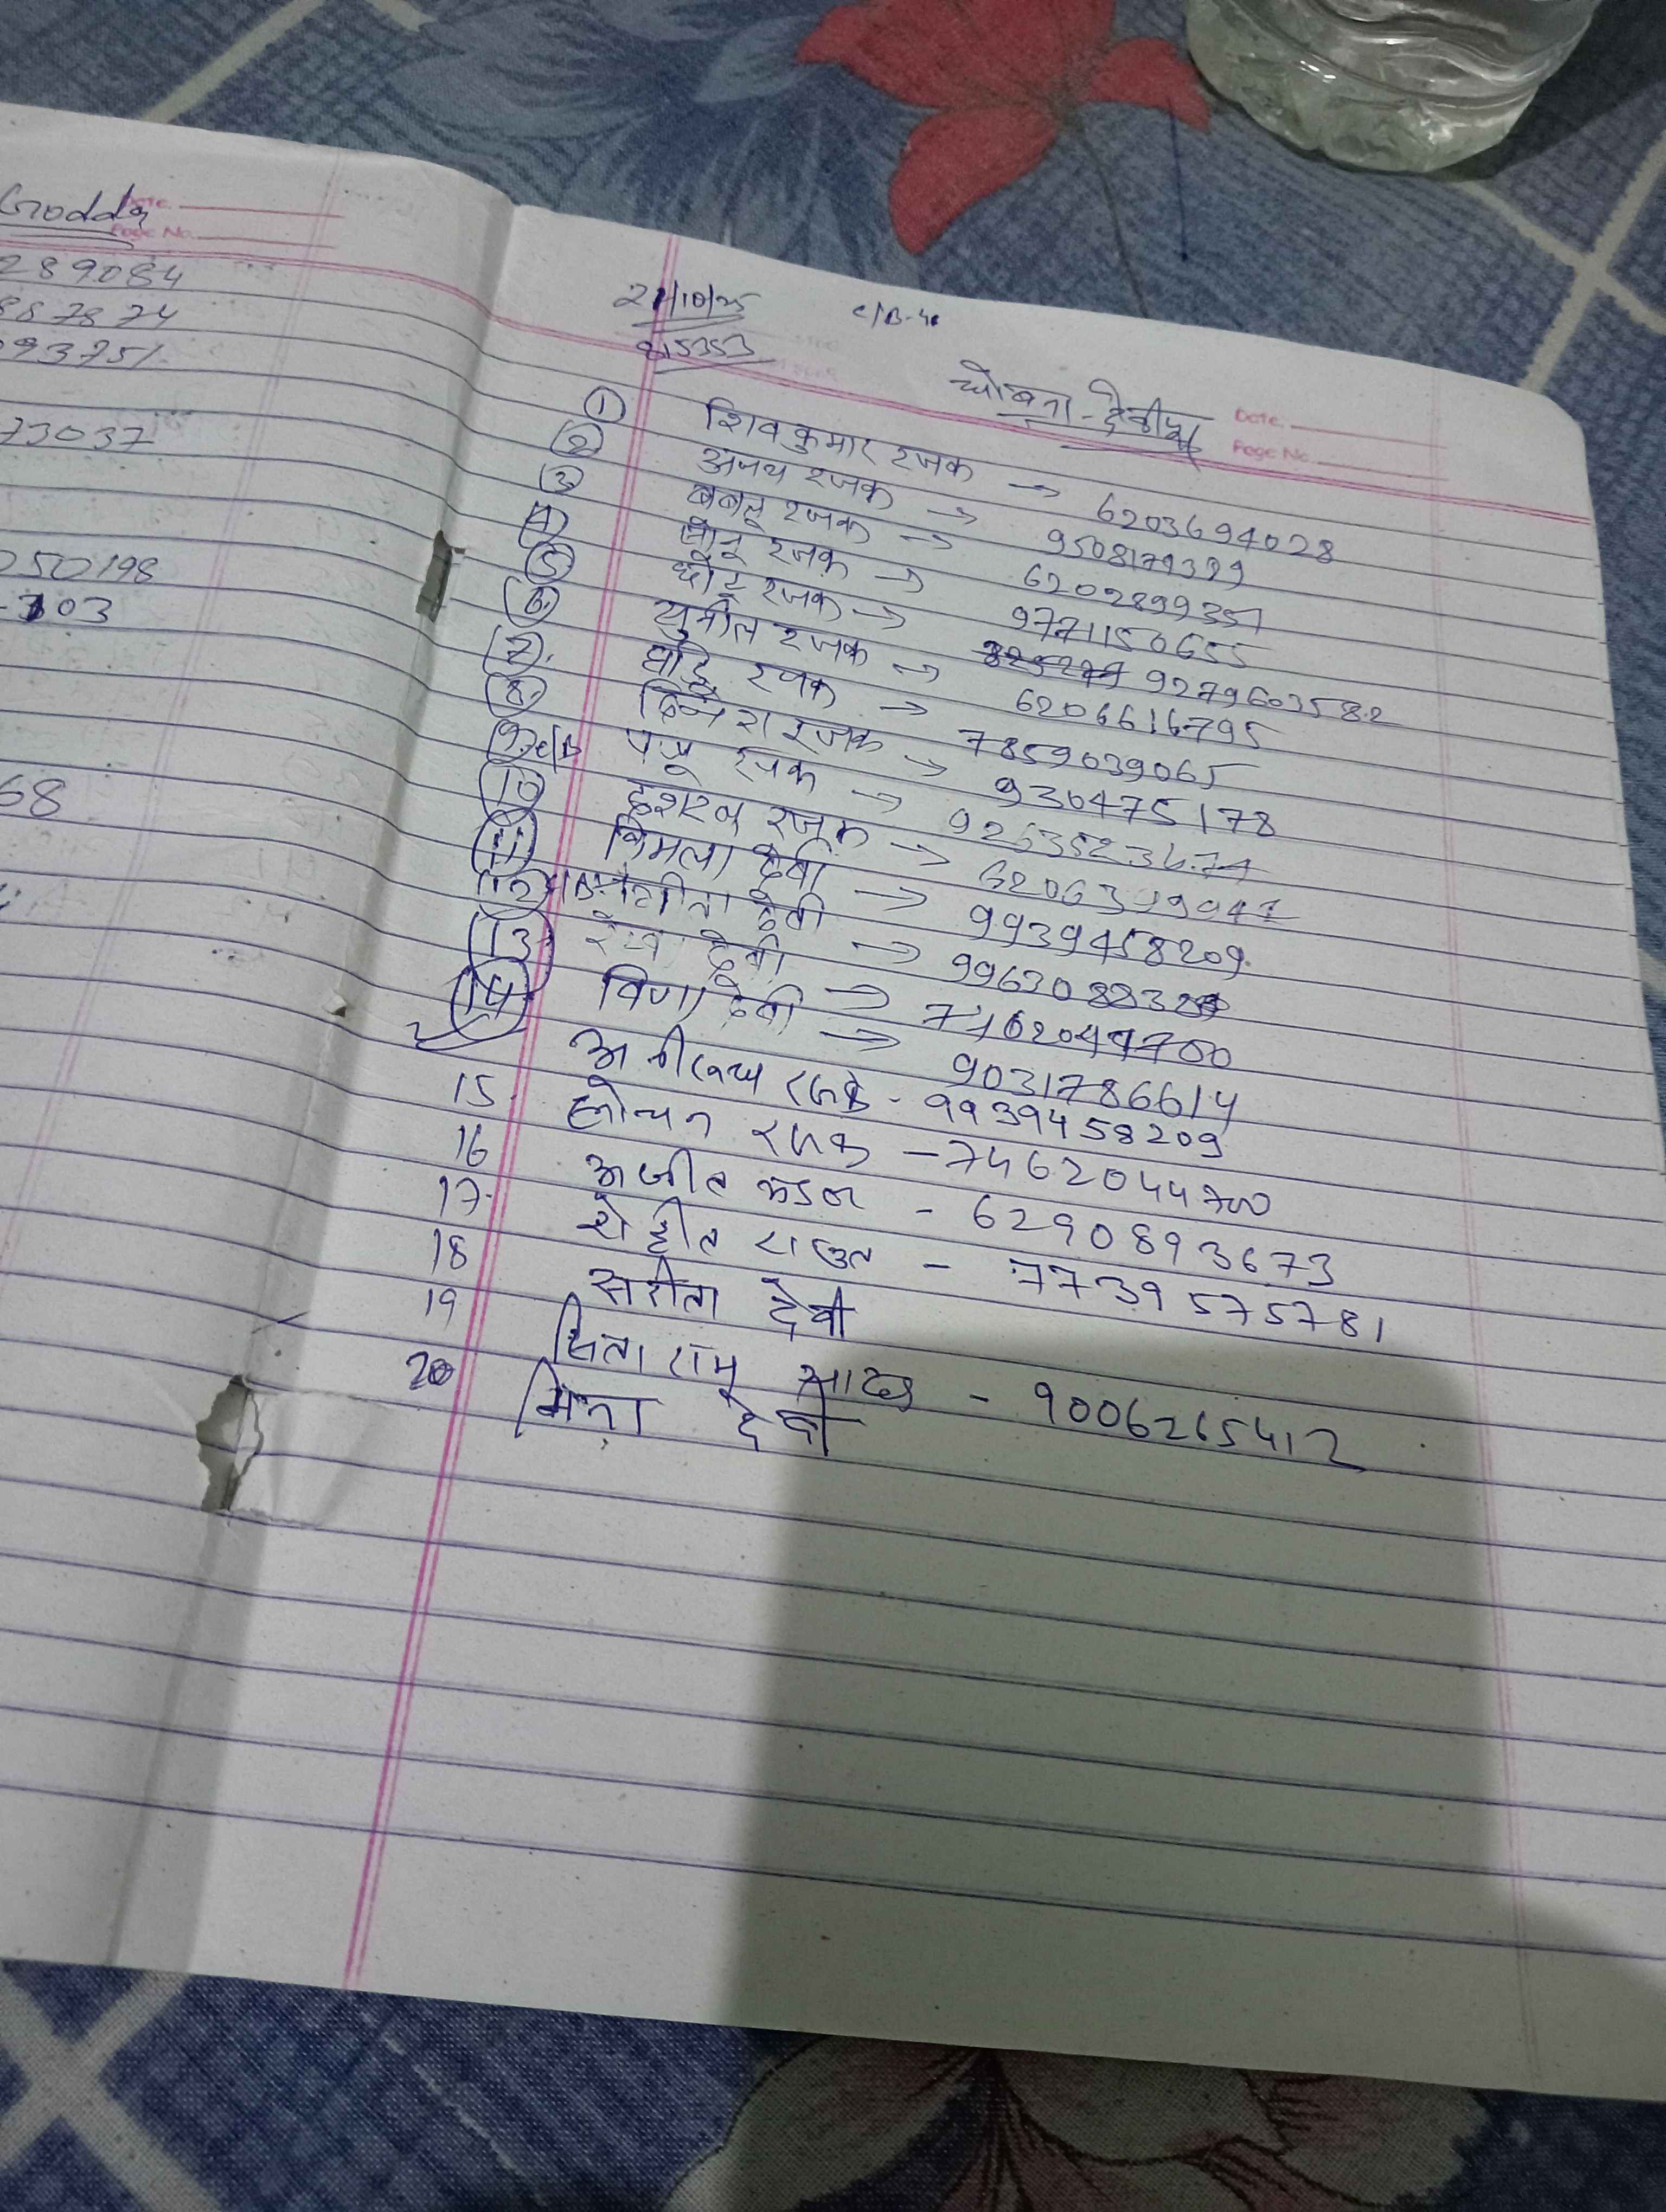 Godda
Date.
Page No.
289084
887874
093751
73037
250198
103
68
21/10/25
C/B-40
Date.
Page No.
① शिवकुमार रजक → 6203694028
② अजय रजक → 9508179399
③ बबलू रजक → 6202899357
④ रजक → 9771150655
⑤ छोटू रजक → 9279603582
⑥ सुनील रजक → 6206616795
⑦ रजक → 7859039065
⑧ दिनेश रजक → 930475178
⑨ C/B पप्पू रजक → 9263523674
⑩ रजक → 6206399941
⑪ विमला देवी → 9939458209
⑫ देवी → 99630883
⑬ देवी → 7
⑭ विणा देवी → 9031786614
रजक - 9939458209
15 रजक - 7462044700
16 अजीत - 6290893673
17. रोहीत राऊत - 7739575781
18 सरीता देवी
19 सिताराम - 9006265412
20 मिना देवी